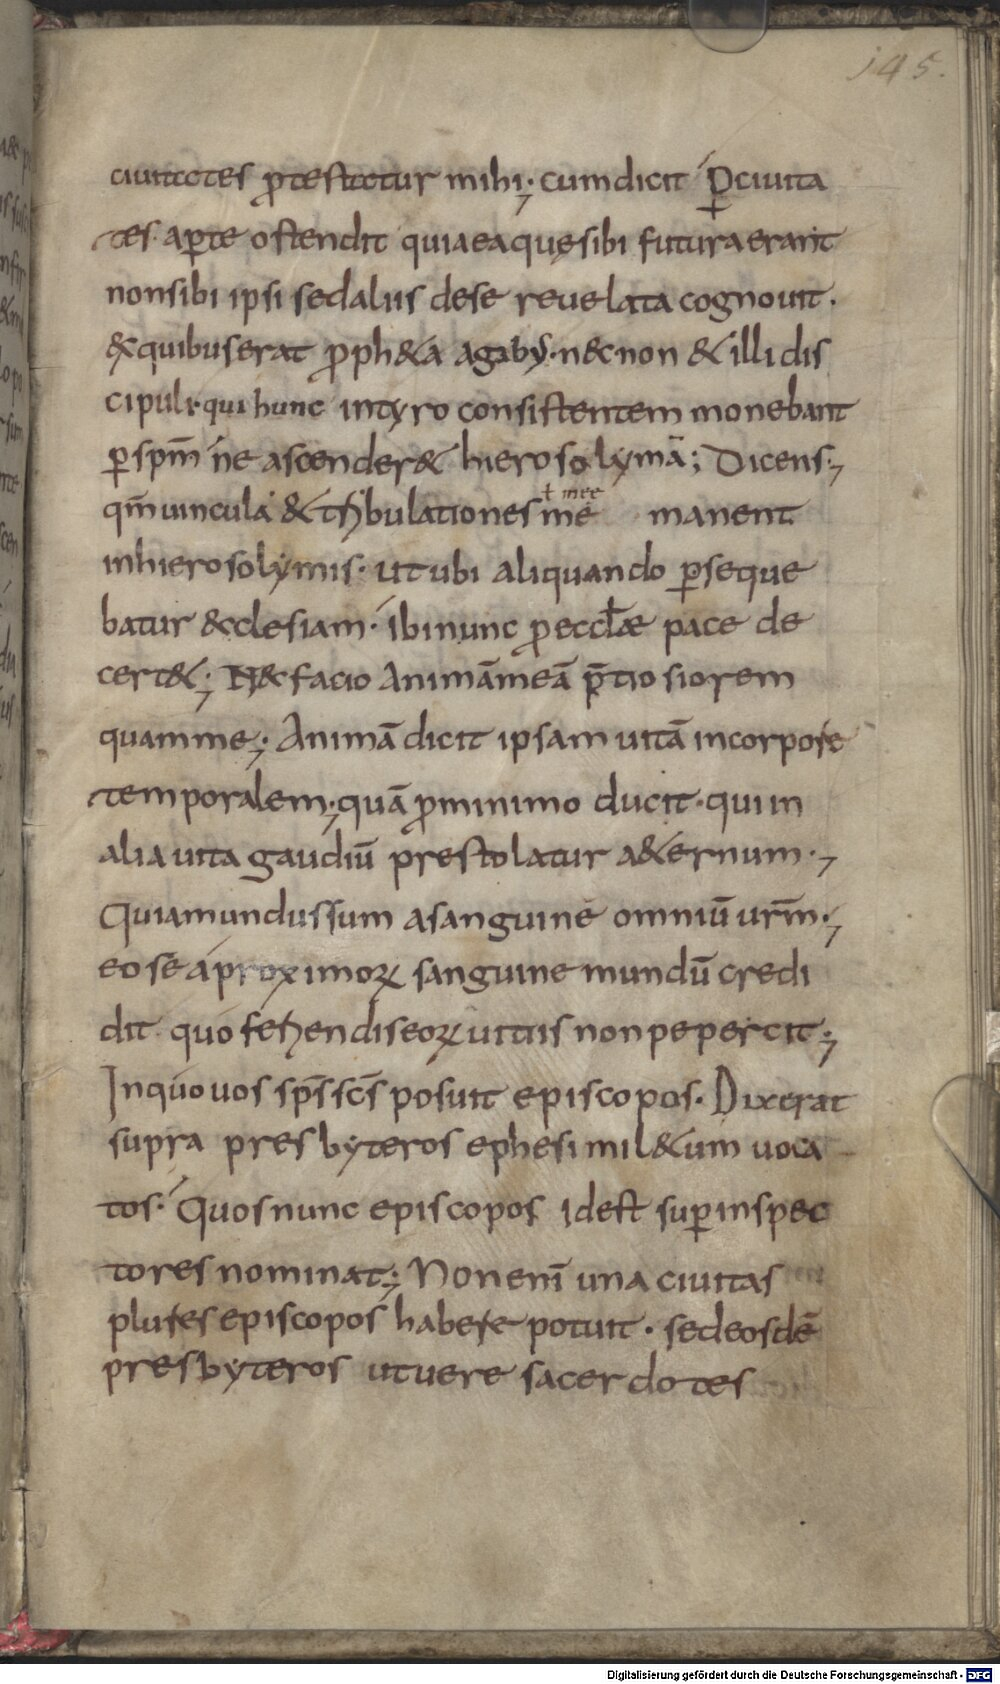 145.
ciuitates ꝓtestatur mihi; cum dicit Ꝑ ciuita
tes. aꝑte ostendit quia ea quę sibi futura erant
non sibi ipsi sed aliis de se reuelata cognouit.
Ex quibus erat ꝓph&a agabus. nec non & illi dis
cipuli. qui hunc in tyro consistentem monebant
ꝑ spm̄ ne ascender& hierosolymā; Dicens;
qm̄ uincula & tribulationes me manent
ł mee
in hierosolymis. ut ubi aliquando ꝑseque
batur &clesiam. ibi nunc ꝓ eccłae pace de
cert&; Nec facio animā meā p̄tiosiorem
quam me; Animā dicit ipsam uitā in corpore
temporalem; quā ꝓ minimo ducit. qui in
alia uita gaudiū prestolatur a&ernum;
Quia mundus sum a sanguine omniū urm̄;
eo se a proximoꝝ sanguine mundū credi
dit quo feriendis eoꝝ uitiis non pepercit;
In quo uos sp̄s sc̄s posuit episcopos. Dixerat
supra presbyteros ephesi mil&um uoca
tos. Quos nunc episcopos id est suꝑinspec
tores nominat; Non enī una ciuitas
plures episcopos habere potuit. sed eosdē
presbyteros ut uere sacerdotes
Digitalisierung gefördert durch die Deutsche Forschungsgemeinschaft - DFG